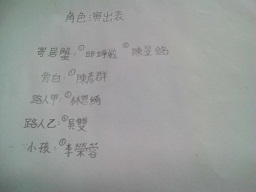 角色:演出表
寄居蟹:①邱 ②陳
旁白:①陳彥群
路人甲:①林恩綺
路人乙:①吳雙
小孩:①李榮蓉